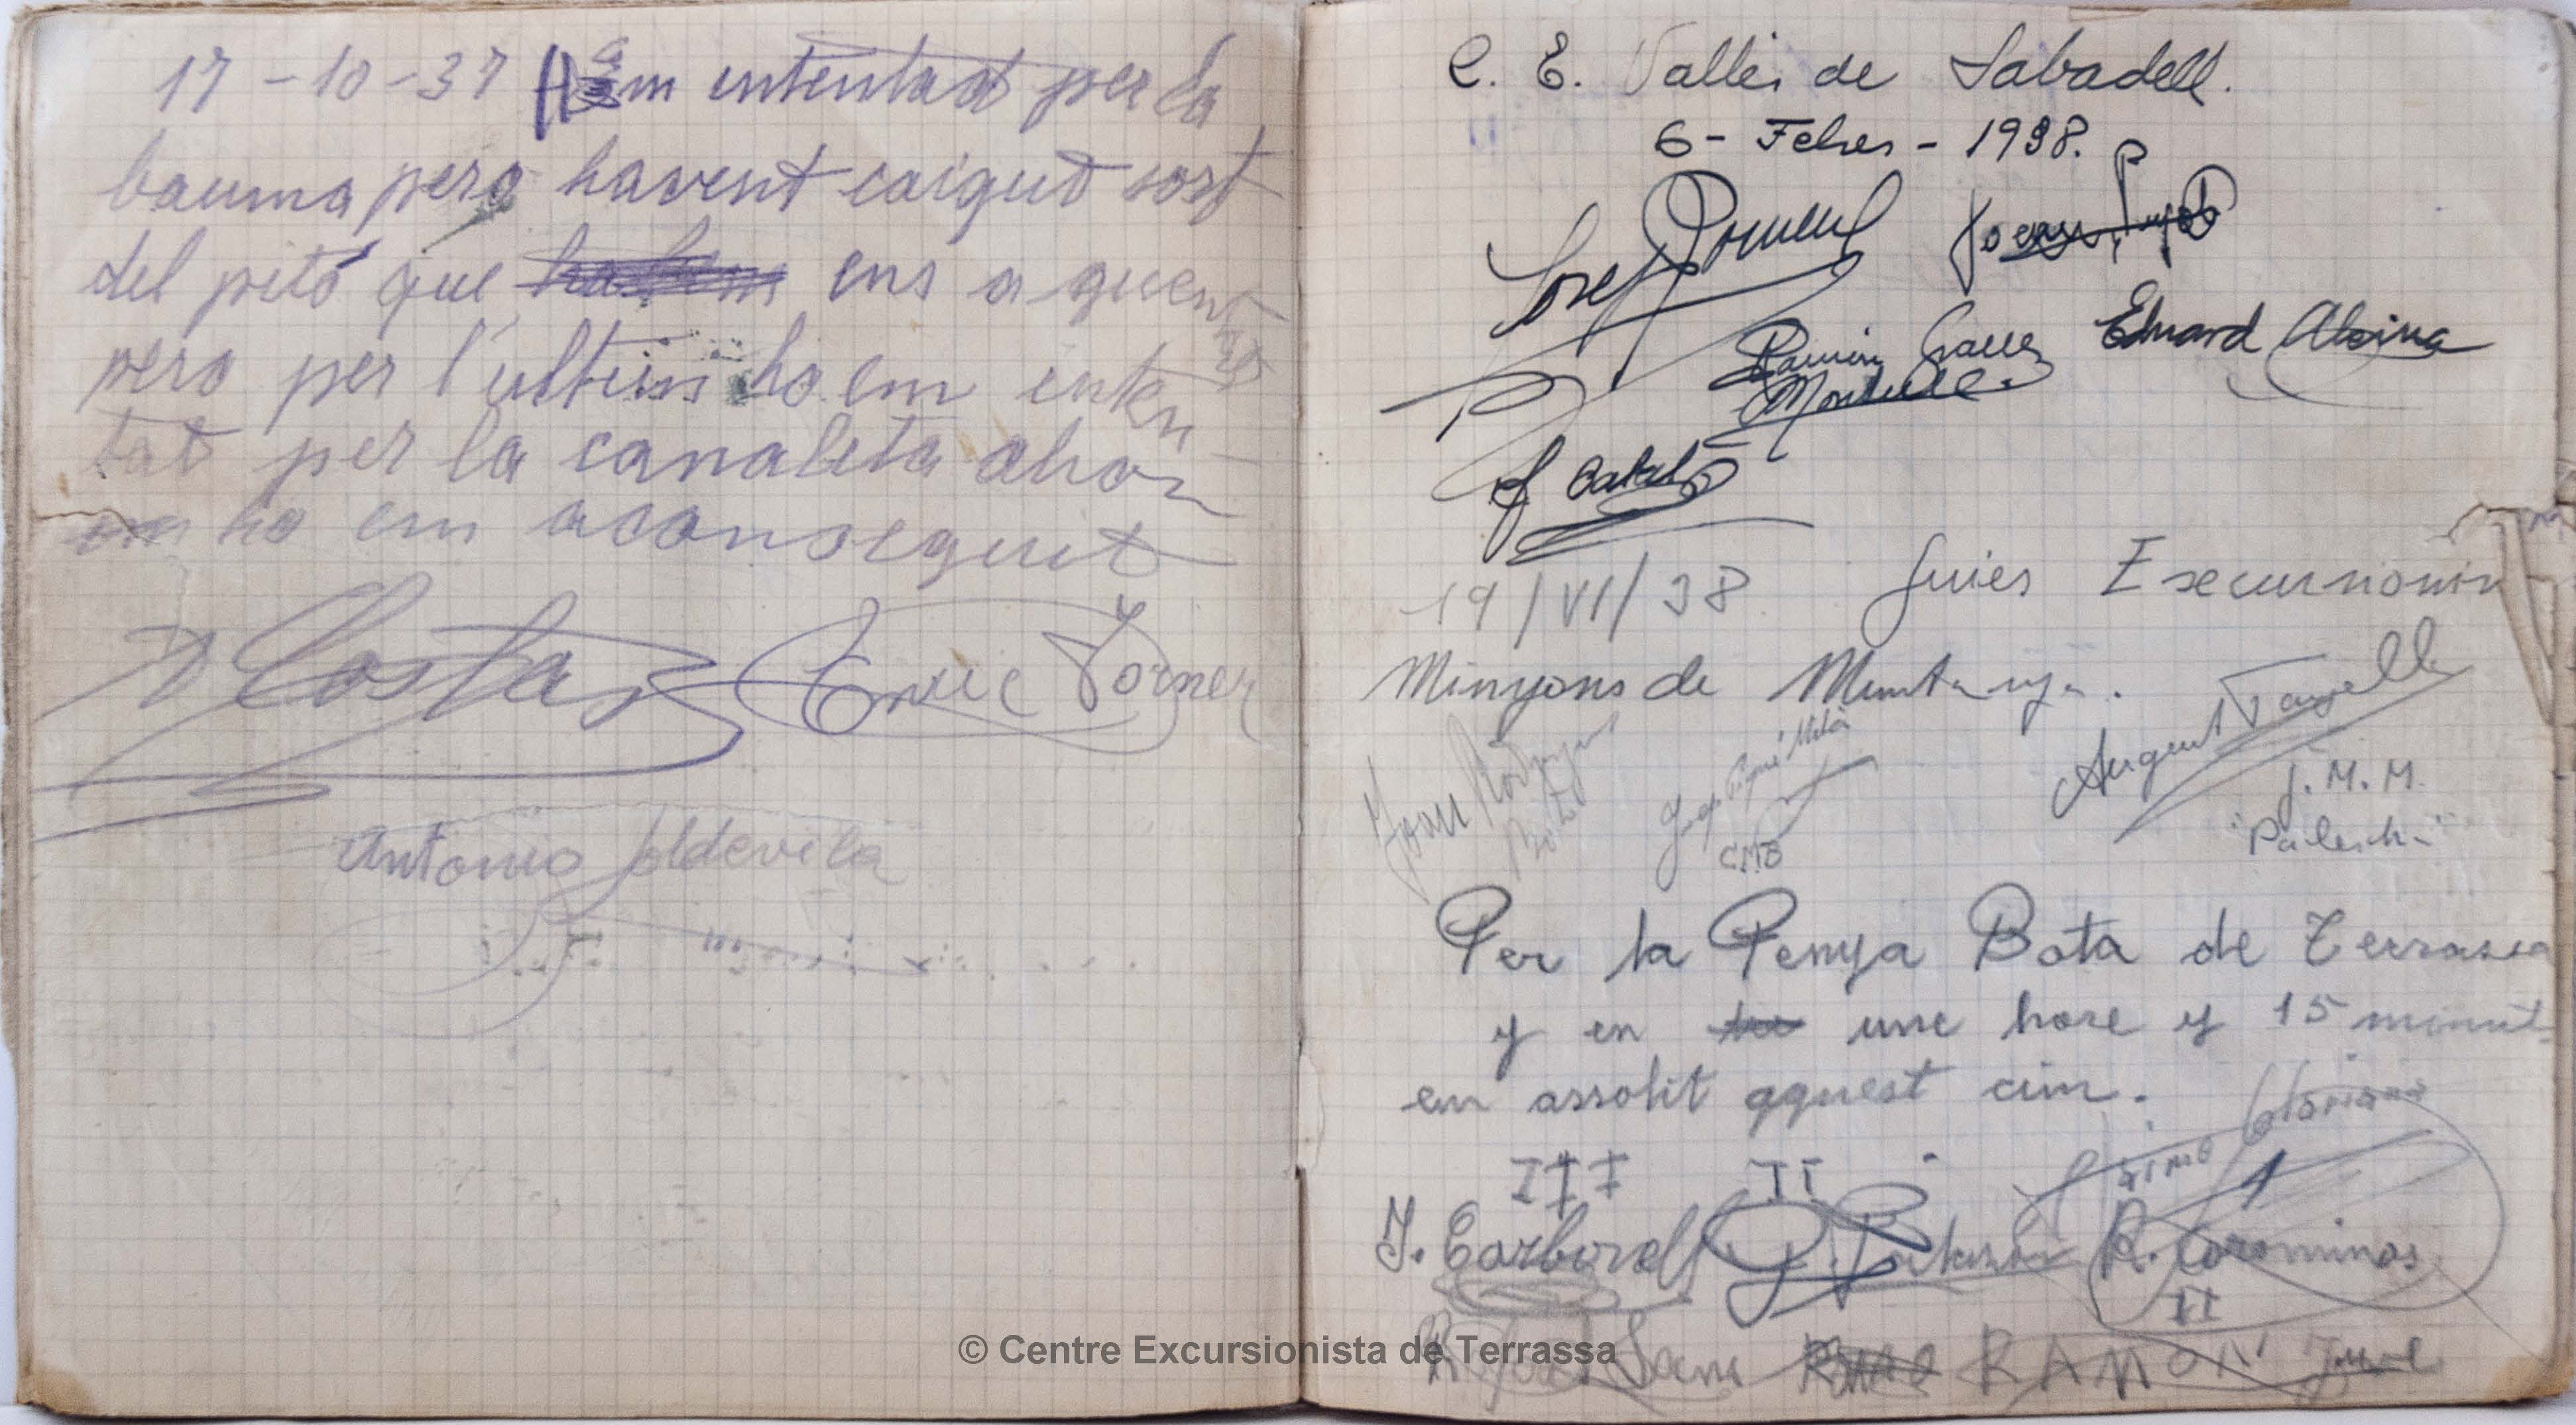 17-10-37 Hem intentat per la
bauma pero havent caigut sort
del pitó que ens aguen
pero per l'ultim ho em inten
tat per la canaleta ahon
ho em aconseguit
Costa Enric Torner
Antonio Soldevila
C. E. Vallés de Sabadell.
6 - Febrer - 1938.
Josep Joan
Ramón Eduard Alsina
Català
19/VI/38 Guies Excursionis
Minyons de Muntanya.
Joan
Josep Piqué Milà
CMB
Argent Vancells
J. M. M.
Per la Penya Bota de Terrassa
y en une hore y 15 minut
em assolit aquest cim.
III II
J. Carbonell R. Corominas
II
© Centre Excursionista de Terrassa
Sans RAMON